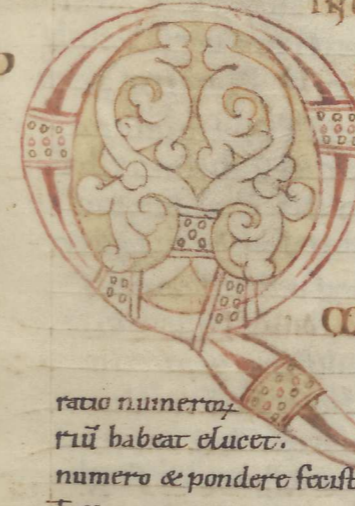 Q
ratio numeroꝝ
riū habeat elucet.
numero & pondere fecist